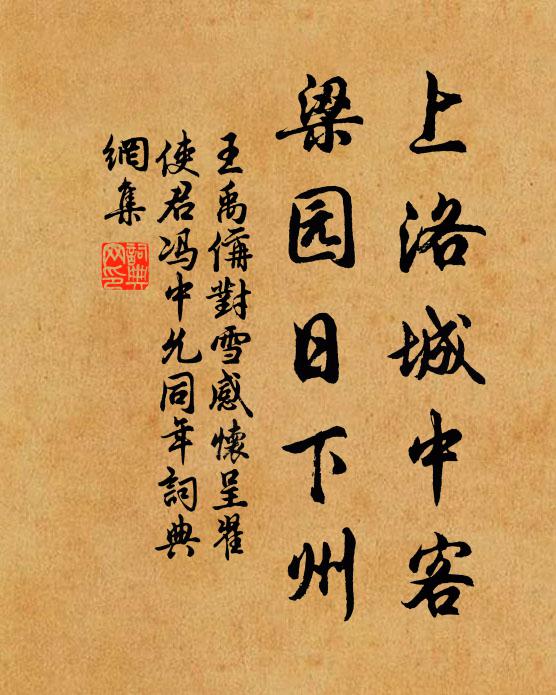 上洛城中客
梁园日下州
王禹偁對雪感懷呈翟
使君冯中允同年詞典
網集
詞典
网印